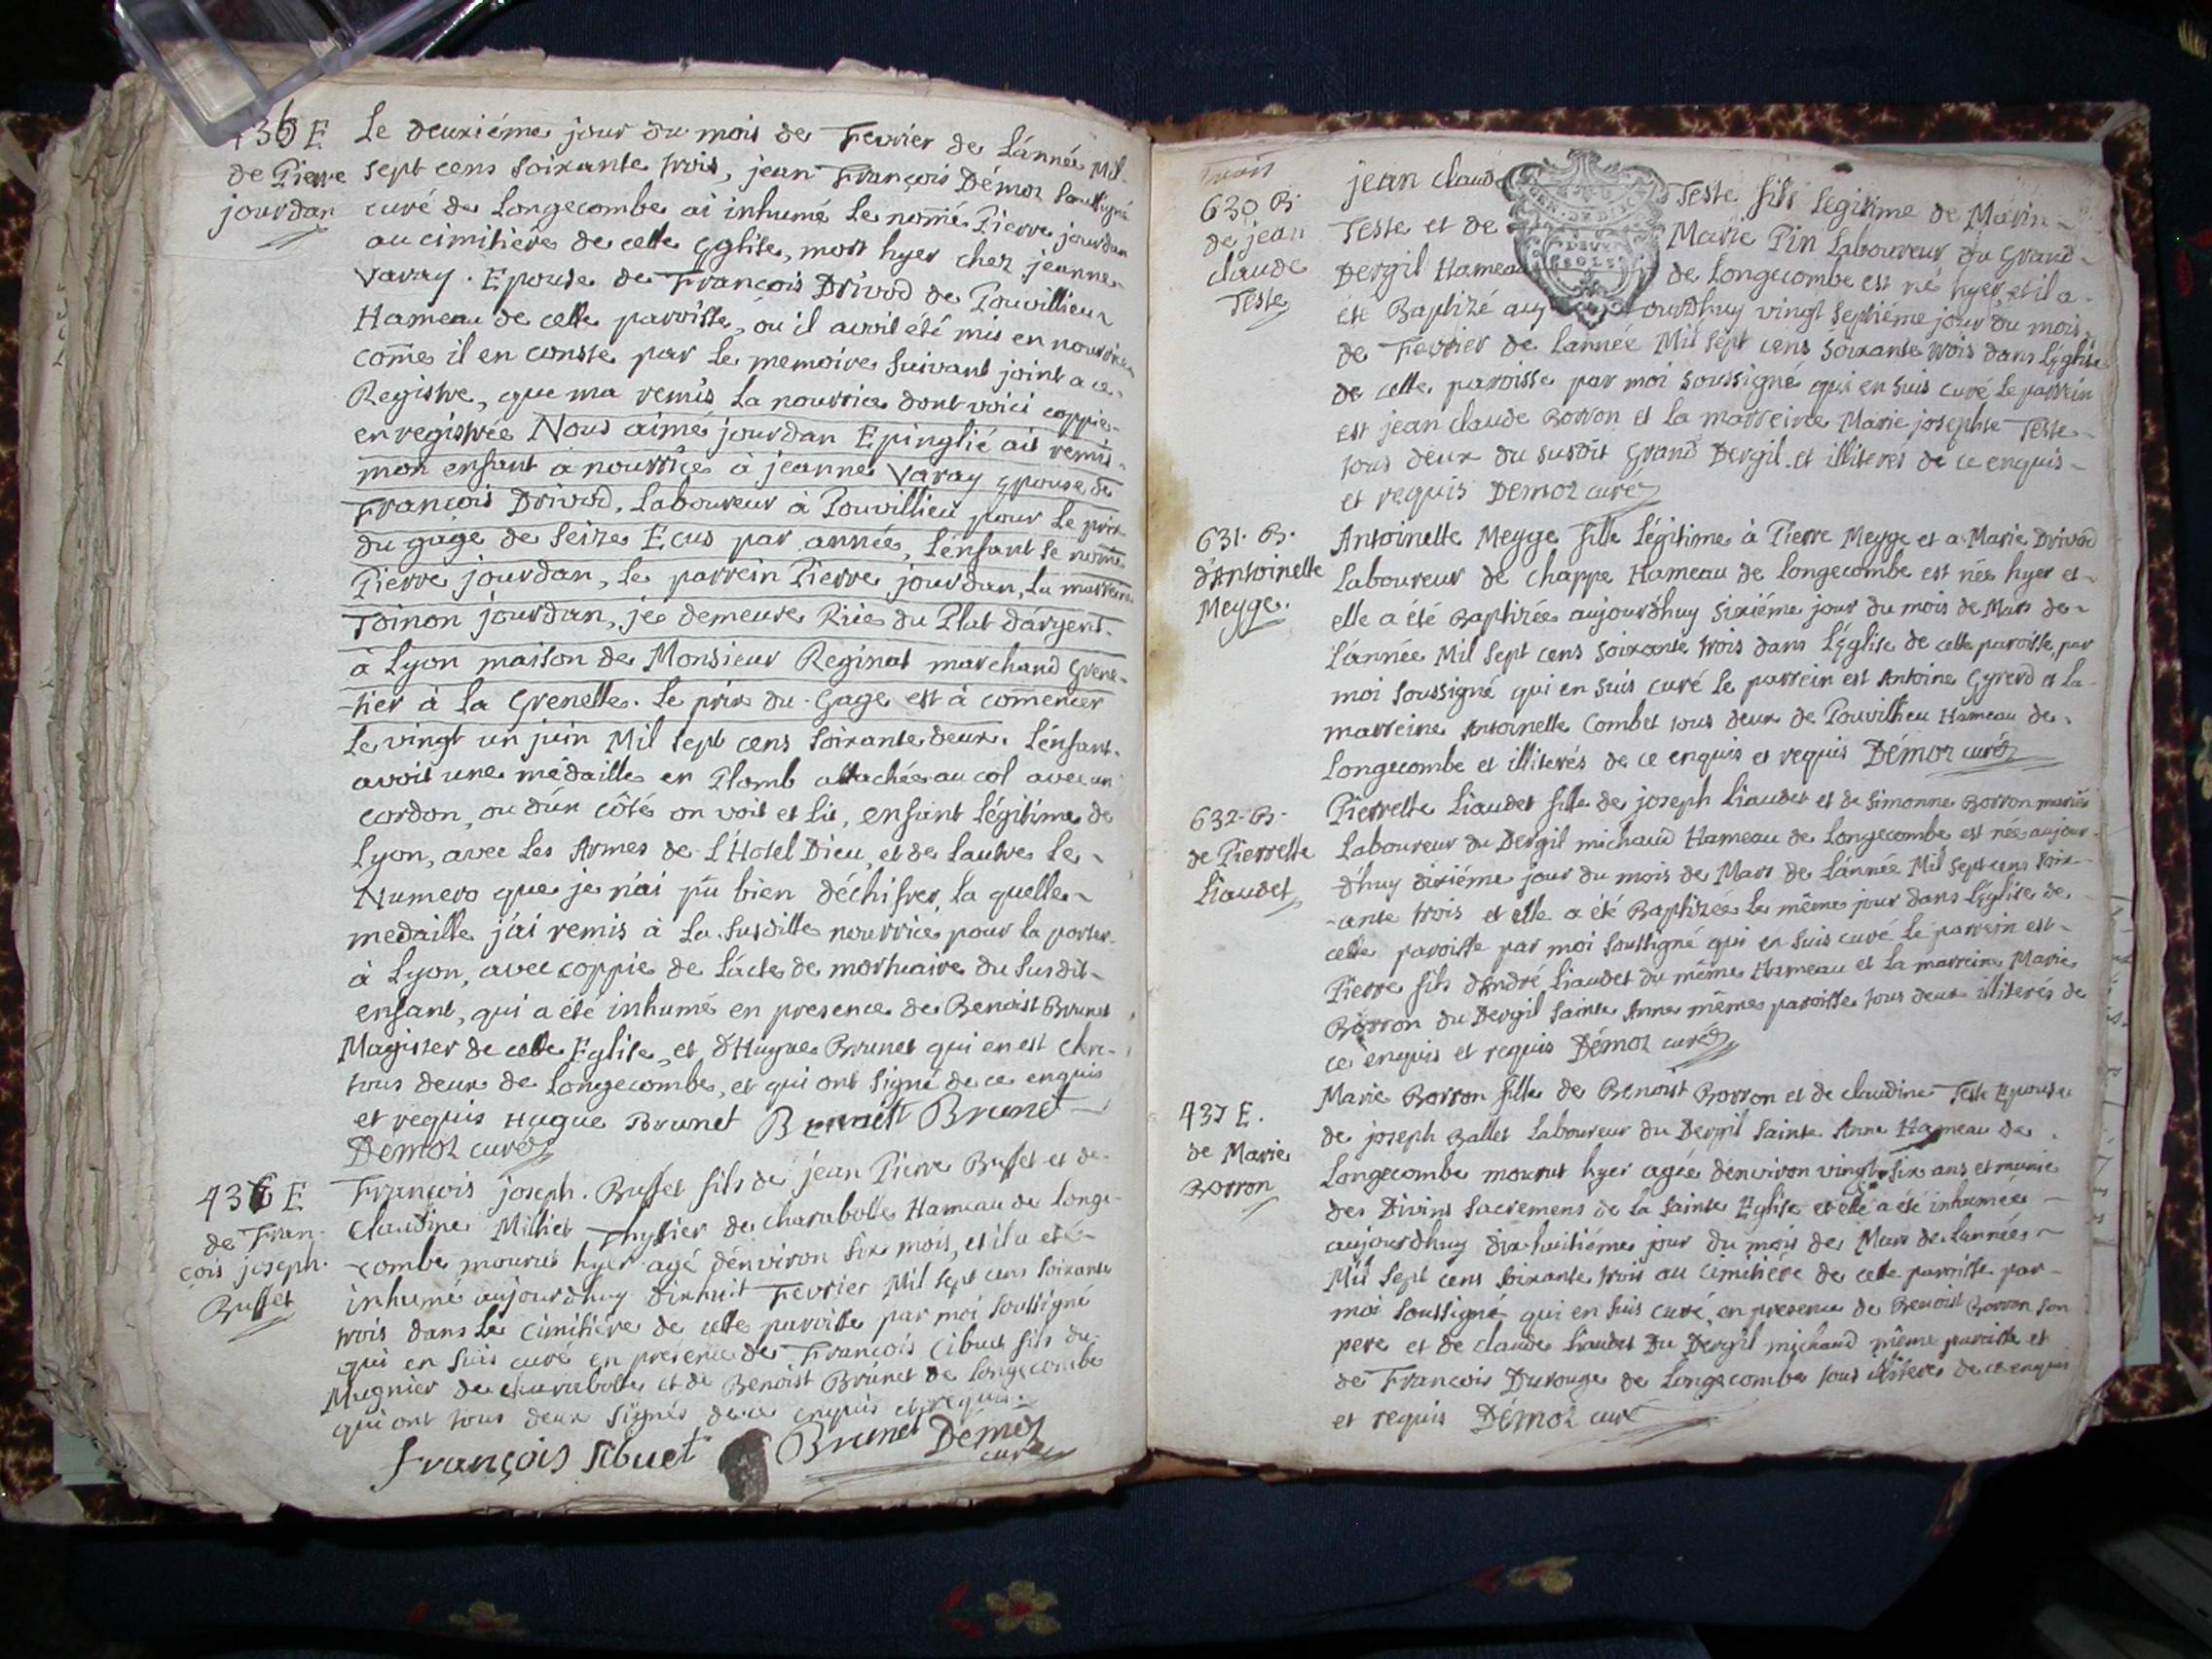 436 E
de Pierre
jourdan
Le deuxiéme jour du mois de Fevrier de L'année Mil
sept cens soixante trois, jean François Démoz soussigné
curé de Longecombe ai inhumé le nomé Pierre jourdan
au cimitiére de cette Eglise, mort hyer chez jeanne
Varay. Epouse de François Drivod de Pouvillieu
Hameau de cette parroisse, où il avoit été mis en nourrice
come il en conste par le memoire suivant joint a ce
Registre, que ma remis la nourrice dont voici coppie
enregistrée Nous aimé jourdan Epinglié ait remis
mon enfant à nourrice à jeanne Varay epouse de
François Drivod, Laboureur à Pouvillieu pour le prix
du gage de seize Ecus par année, l'enfant se nome
Pierre jourdan, le parrein Pierre jourdan, la marreine
Toinon jourdan, je demeure Rüe du Plat d'argent
à Lyon maison de Monsieur Reginat marchand Grene-
-tier à la Grenette. Le prix du Gage est à comencer
Le vingt un juin Mil sept cens soixante deux. L'enfant
avoit une médaille en Plomb attachée au col avec un
cordon, ou d'un côté on voit et lit, enfant légitime de
Lyon, avec les Armes de L'Hotel Dieu, et de lautre le
Numero que je n'ai pû bien déchifrer, la quelle
medaille j'ai remis à la susditte nourrice pour la porter
à Lyon, avec coppie de l'acte de mortuaire du susdit
enfant, qui a été inhumé en presence de Benoist Brunet
Magister de cette Eglise, et d'Hugue Brunet qui en est clerc
tous deux de Longecombe, et qui ont signé de ce enquis
et requis Hugue Brunet Benoitt Brunet
Démoz curé
436 E
de Fran-
çois joseph
Buffet
François joseph. Buffet fils de jean Pierre Buffet et de
Claudine Milliet Thyssier de charabotte Hameau de Longe-
-combe mourut hyer agé d'environ six mois, et il a eté
inhumé aujourdhuy dixhuit Fevrier Mil sept cens soixante
trois dans le cimitiére de cette paroisse par moi soussigné
qui en suis curé en presence de François Cibuet fils du
Mugnier de charabotte et de Benoist Brunet de Longecombe
qui ont tous deux signés de ce enquis et requis
François Sibuet Brunet Démoz
curé
trois
630 B.
de jean
claude
Teste
jean claude Teste fils legitime de Marin
Teste et de Marie Pin Laboureur du Grand
Dergil Hameau de Longecombe est né hyer, et il a
été Baptizé aujourdhuy vingt septiéme jour du mois
de Fevrier de Lannée Mil sept cens soixante trois dans L'Eglise
de cette paroisse par moi soussigné qui en suis curé le parrein
est jean claude Borron et la marreine Marie josephte Teste
tous deux du susdit Grand Dergil et illiterés de ce enquis
et requis Démoz curé
631. B.
d'Antoinette
Meyge.
Antoinette Meyge fille légitime à Pierre Meyge et a Marie Drivod
Laboureur de chappe Hameau de Longecombe est née hyer et
elle a été Baptizée aujourdhuy sixiéme jour du mois de Mars de
L'année Mil sept cens soixante trois dans L'Eglise de cette paroisse, par
moi soussigné qui en suis curé le parrein est Antoine Gyrerd et la
marreine Antoinette Combet tous deux de Pouvillieu Hameau de
Longecombe et illiterés de ce enquis et requis Démoz curé
632. B.
de Pierrette
Liaudet
Pierrette Liaudet fille de joseph Liaudet et de Simonne Borron mariés
Laboureur du Dergil michaud Hameau de Longecombe est née aujour-
d'huy dixiéme jour du mois de Mars de L'année Mil sept cens soix-
-ante trois et elle a été Baptizée le même jour dans L'Eglise de
cette paroisse par moi soussigné qui en suis curé le parrein est
Pierre fils d'André Liaudet du même Hameau et la marreine Marie
Borron du Dergil sainte Anne même paroisse tous deux illiterés de
ce enquis et requis Démoz curé
437 E.
de Marie
Borron
Marie Borron fille de Benoist Borron et de claudine Teste Epouse
de joseph Ballet Laboureur du Dergil sainte Anne Hameau de
Longecombe mourut hyer agée denviron vingt six ans et munie
des Divins sacremens de la sainte Eglise et elle a été inhumée
aujourdhuy dix huitiéme jour du mois de Mars de Lannée
Mil sept cens soixante trois au cimitiére de cette paroisse par
moi soussigné qui en suis curé, en presence de Benoist Borron son
pere et de claude Liaudet Du Dergil michaud même paroisse et
de François Durouge de Longecombe tous illiteres de ce enquis
et requis Démoz curé